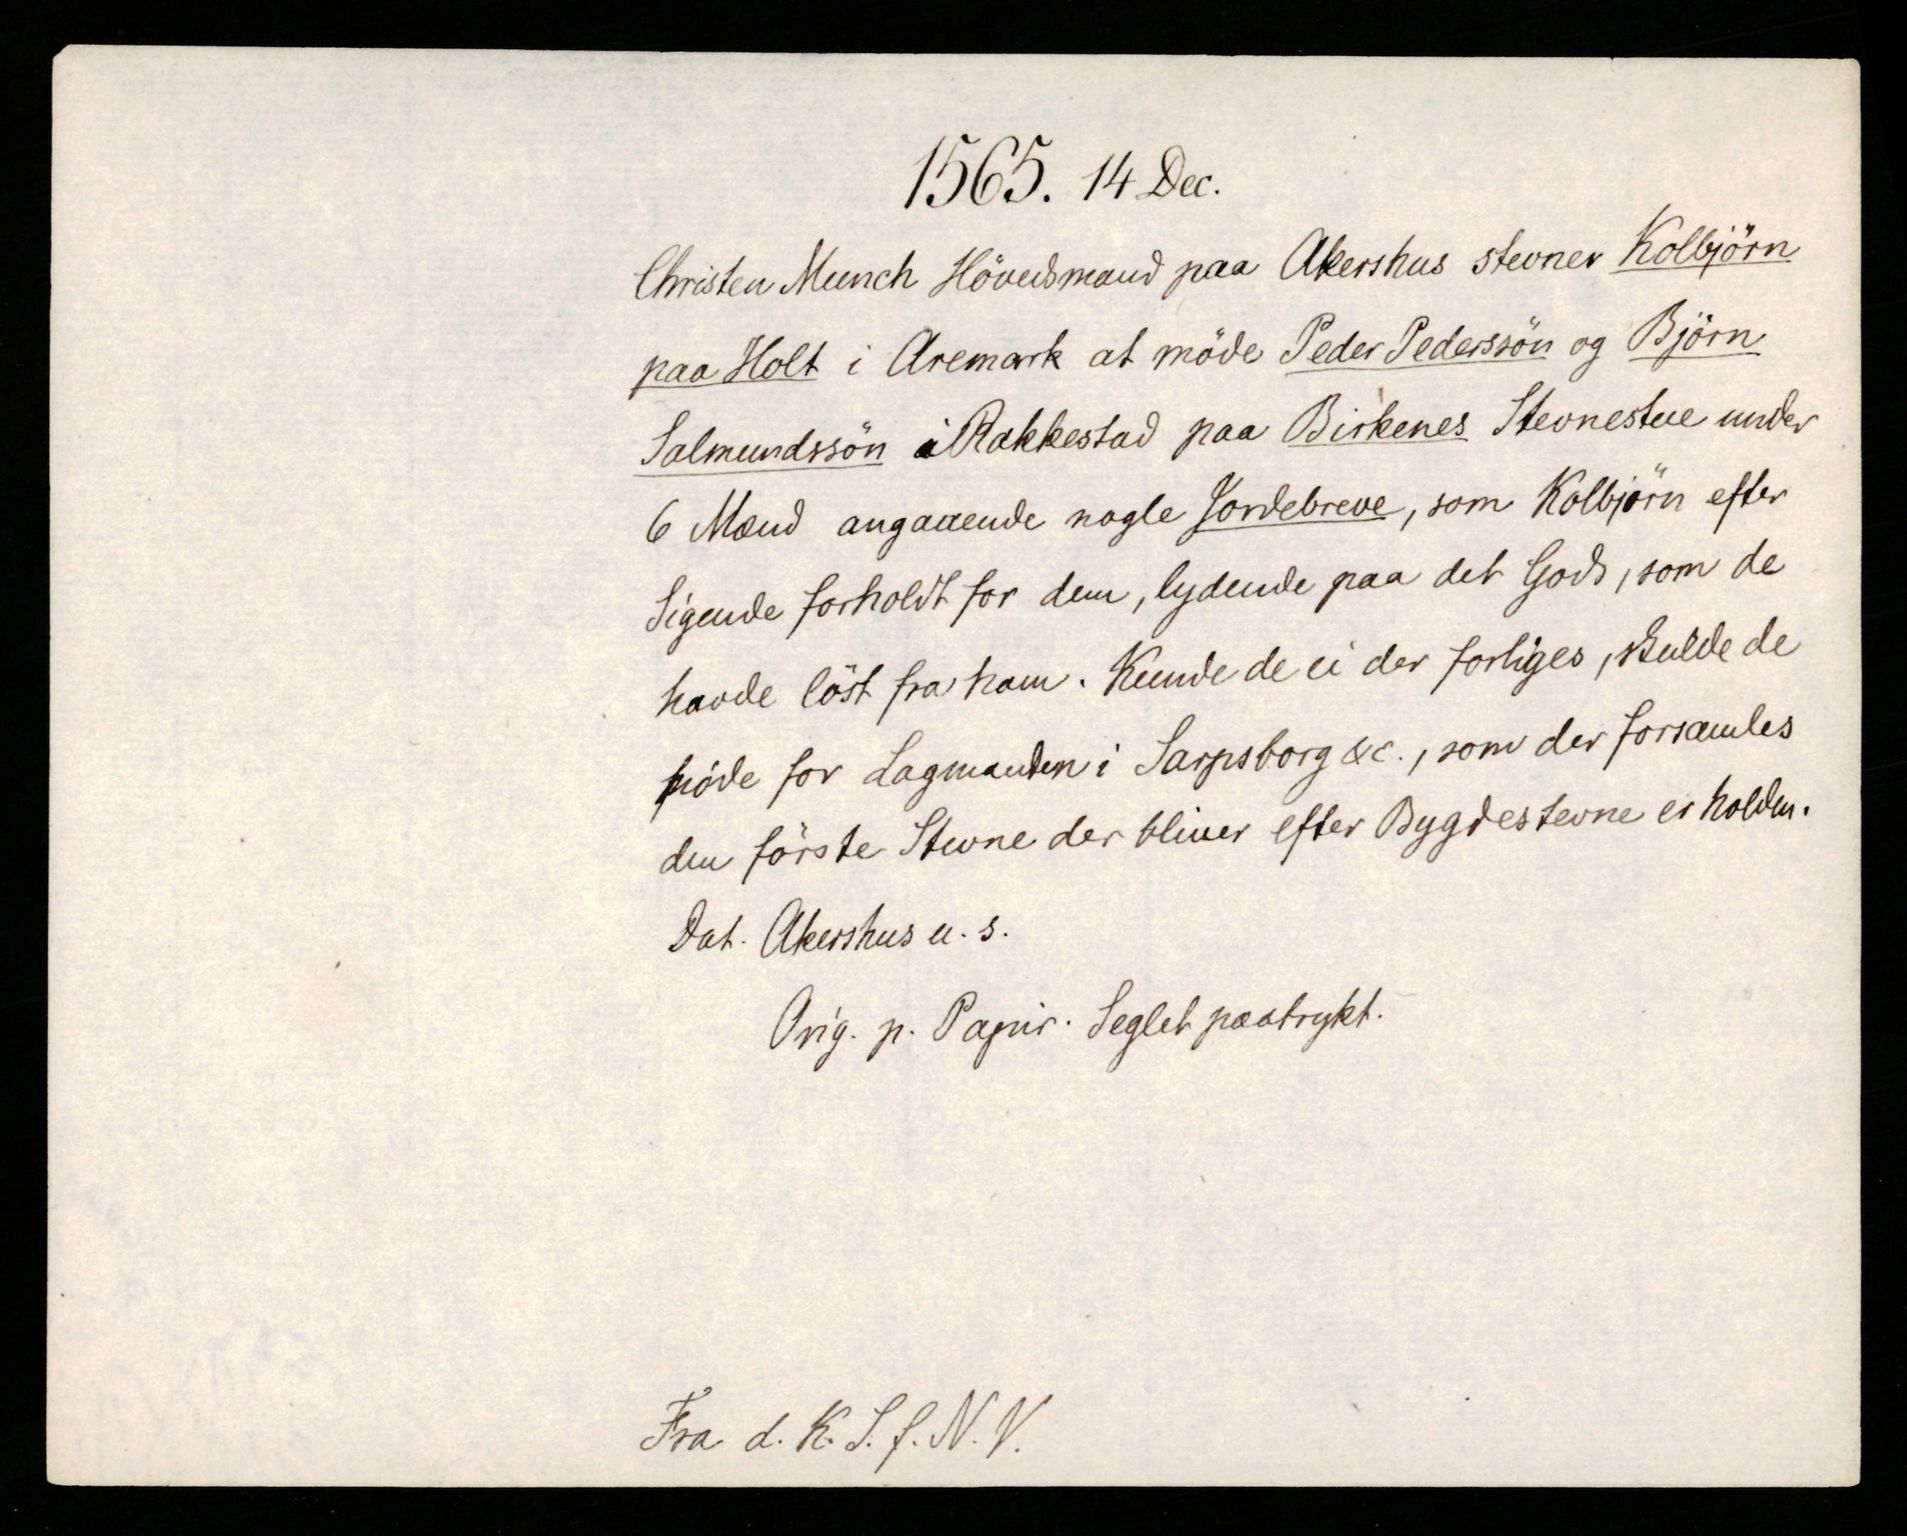 1565. 14 Dec.
Christen Munch Hövedsmand paa Akershus stevner Kolbjörn
paa Holt i Aremark at möde Peder Pederssön og Björn
Salmundssön i Rakkestad paa Birkenes Stevnestue under
6 Mænd angaaende nogle Jordebreve, som Kolbjörn efter
Sigende forholdt for dem, lydende paa det Gods, som de
havde löst fra ham. Kunde de ei der forliges, skulde de
möde for Lagmanden i Sarpsborg &c., som der forsamles
den förste Stevne der bliver efter Bygdestevne er holden.
Dat. Akershus u. s.
Orig. p. Papir. Seglet paatrykt.
Fra d. K. S. f. N. V.